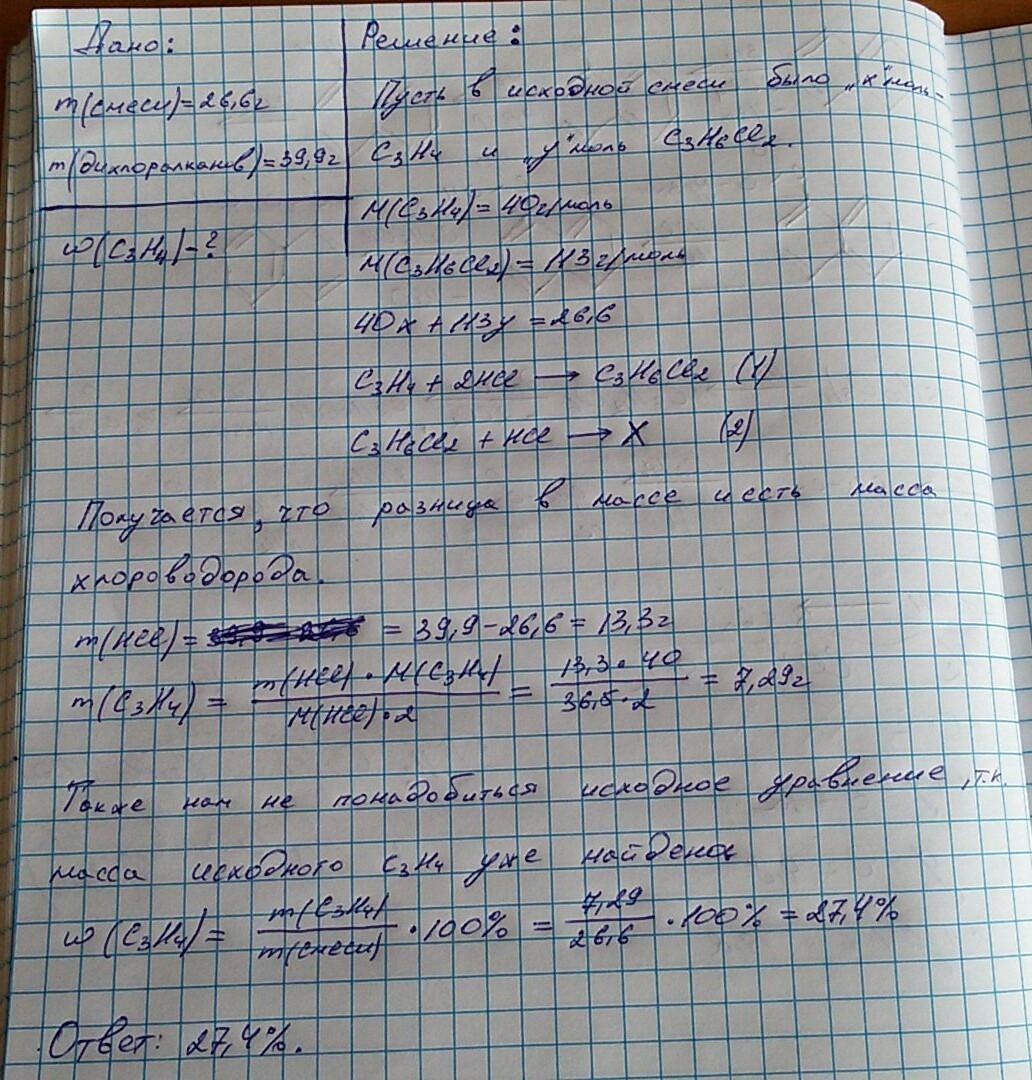 Дано:
m(смеси)=26,6г
m(дихлоралканов)=39,9г
ω(C₃H₄)-?
Решение:
Пусть в исходной смеси было „x"моль-
C₃H₄ и „y"моль C₃H₆Cl₂.
M(C₃H₄)=40г/моль
M(C₃H₆Cl₂)=113г/моль
40x+113y=26,6
C₃H₄+2HCl → C₃H₆Cl₂ (1)
C₃H₆Cl₂+HCl → X (2)
Получается, что разница в массе и есть масса
хлороводорода.
m(HCl)= = 39,9-26,6=13,3г
m(C₃H₄) = m(HCl)·M(C₃H₄)/M(HCl)·2 = 13,3·40/36,5·2 = 7,29г
Также нам не понадобиться исходное уравнение, т.к.
масса исходного C₃H₄ уже найдена
ω(C₃H₄)= m(C₃H₄)/m(смеси)·100% = 7,29/26,6·100% = 27,4%
Ответ: 27,4%.